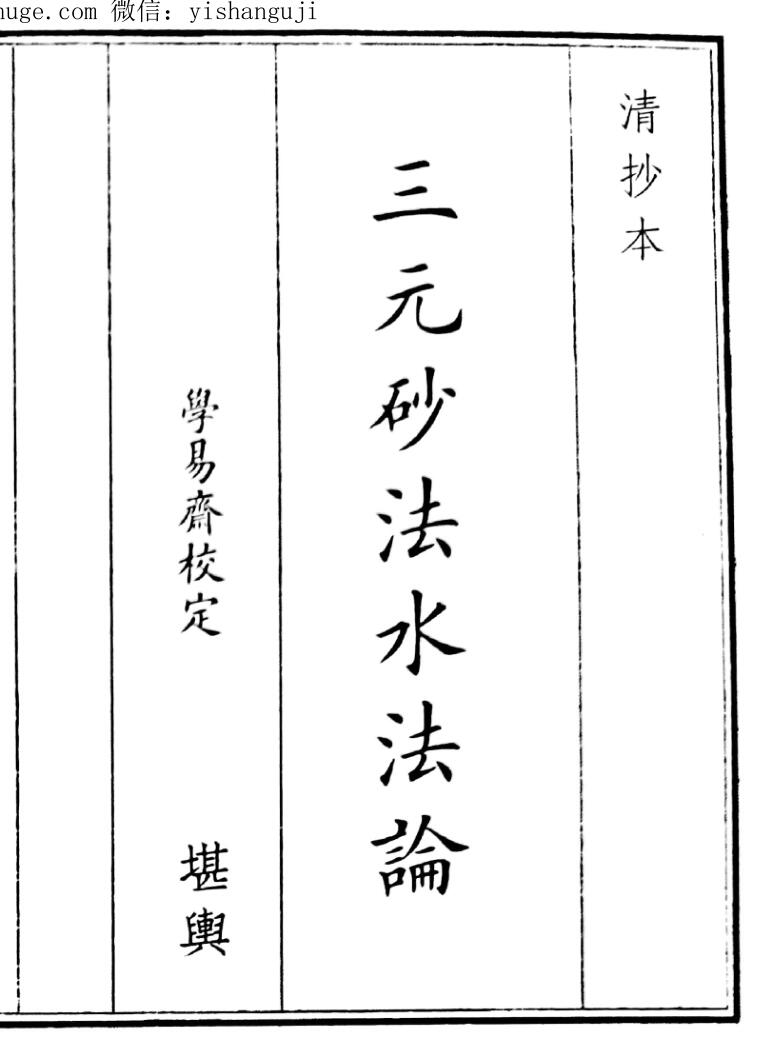 huge.com 微信：yishanguji
清抄本
三元砂法水法論
學易齋校定
堪輿